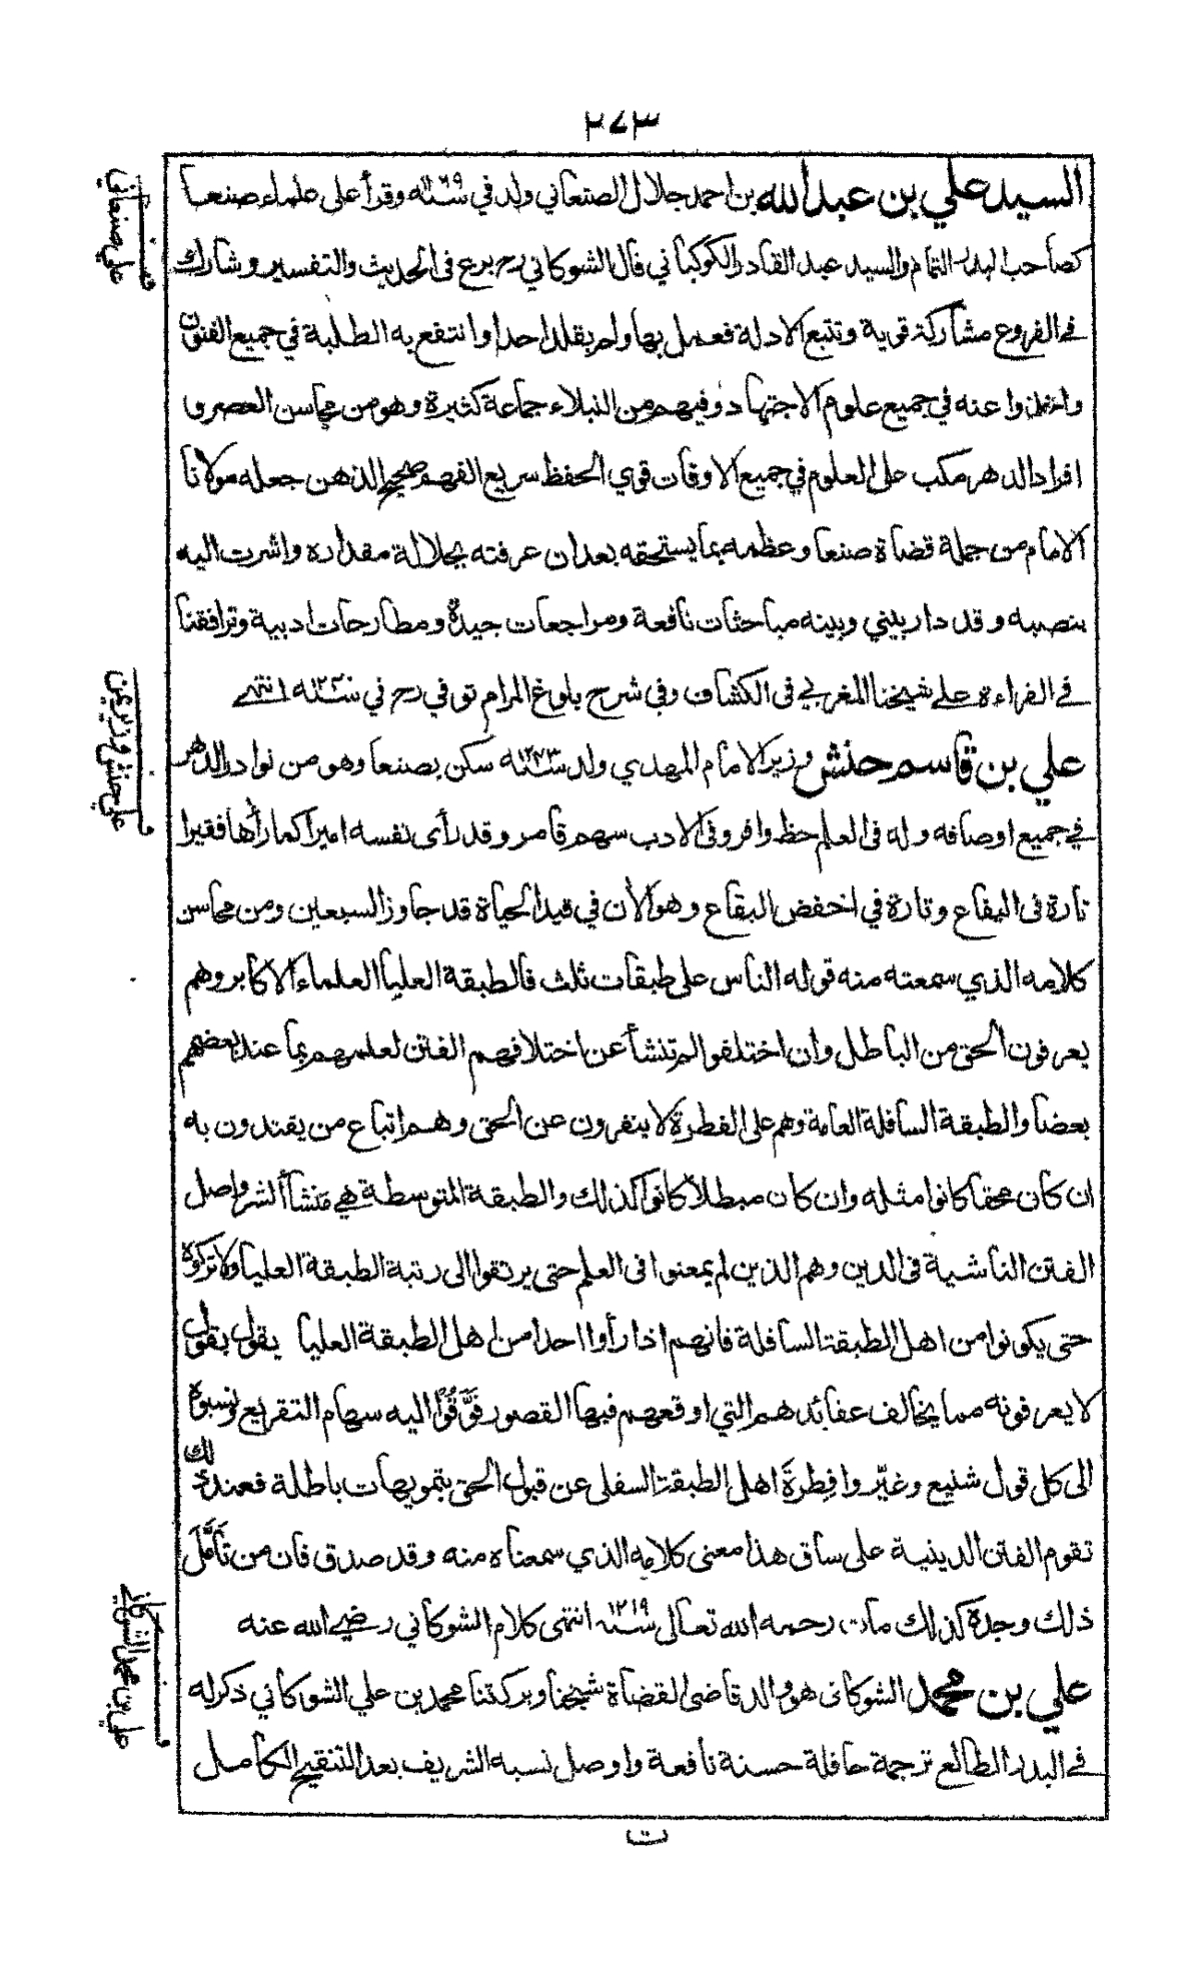 ٢٧٣
السيد علي بن عبد الله بن احمد جلال الصنعاني ولد في سنة ١١٦٩ وقرأ على علماء صنعا
كصاحب البدر التمام والسيد عبد القادر الكوكباني قال الشوكاني رح برع فى الحديث والتفسير وشارك
في الفروع مشاركة قوية وتتبع الادلة فعمل بها ولم يقلد احدا وانتفع به الطلبة في جميع الفنون
واخذوا عنه في جميع علوم الاجتهاد وفيهم من النبلاء جماعة كثيرة وهو من محاسن العصر و
افراد الدهر مكب على العلوم في جميع الاوقات قوي الحفظ سريع الفهم صحيح الذهن جعله مولانا
الامام من جملة قضاة صنعا وعظمه بما يستحقه بعد ان عرفته بجلالة مقداره واشرت اليه
بنصبه وقد دار بيني وبينه مباحثات نافعة ومراجعات جيدة ومطارحات ادبية وترافقنا
في القراءة على شيخنا المغربي فى الكشاف وفي شرح بلوغ المرام توفي رح في سنة انتهى
علي بن قاسم حنش وزير الامام المهدي ولد سنة سكن بصنعا وهو من نوادر الدهر
في جميع اوصافه وله فى العلم حظ وافر وفى الادب سهم قامر وقد رأى نفسه اميرا كما رأها فقيرا
تارة فى اليفاع وتارة في اخفض البقاع وهو الأن في قيد الحياة قد جاوز السبعين ومن محاسن
كلامه الذي سمعته منه قوله الناس على طبقات ثلث فالطبقة العليا العلماء الاكابر وهم
يعرفون الحق من الباطل وان اختلفوا لم تنشأ عن اختلافهم الفتن لعلمهم بما عند بعضهم
بعضا والطبقة السافلة العامة وهم على الفطرة لا ينفرون عن الحق وهم اتباع من يقتدون به
ان كان محقا كانوا مثله وان كان مبطلا كانوا كذلك والطبقة المتوسطة هي منشأ الشر واصل
الفتن الناشية فى الدين وهم الذين لم يمعنوا فى العلم حتى يرتقوا الى رتبة الطبقة العليا ولا تركوه
حتى يكونوا من اهل الطبقة السافلة فانهم اذا رأوا احدا من اهل الطبقة العليا يقول بقول
لا يعرفونه مما يخالف عقائدهم التي اوقعهم فيها القصور فَوَّقُوْا اليه سهام التقريع ونسبوه
الى كل قول شنيع وغيّروا فِطرةَ اهل الطبقة السفلى عن قبول الحق بتمويهات باطلة فعند ذلك
تقوم الفتن الدينية على ساق هذا معنى كلامه الذي سمعناه منه وقد صدق فان من تأمَّلَ
ذلك وجدة كذلك مات رحمه الله تعالى سنة ١٢١٩ انتهى كلام الشوكاني رضي الله عنه
علي بن محمد الشوكانى هو والد قاضى القضاة شيخنا وبركتنا محمد بن علي الشوكاني ذكر له
في البدر الطالع ترجمة حافلة حسنة نافعة واوصل نسبه الشريف بعد التنقيح الكامل
ت
علي صنعاني
علي حنش وزير يمن
علي بن محمد الشوكاني